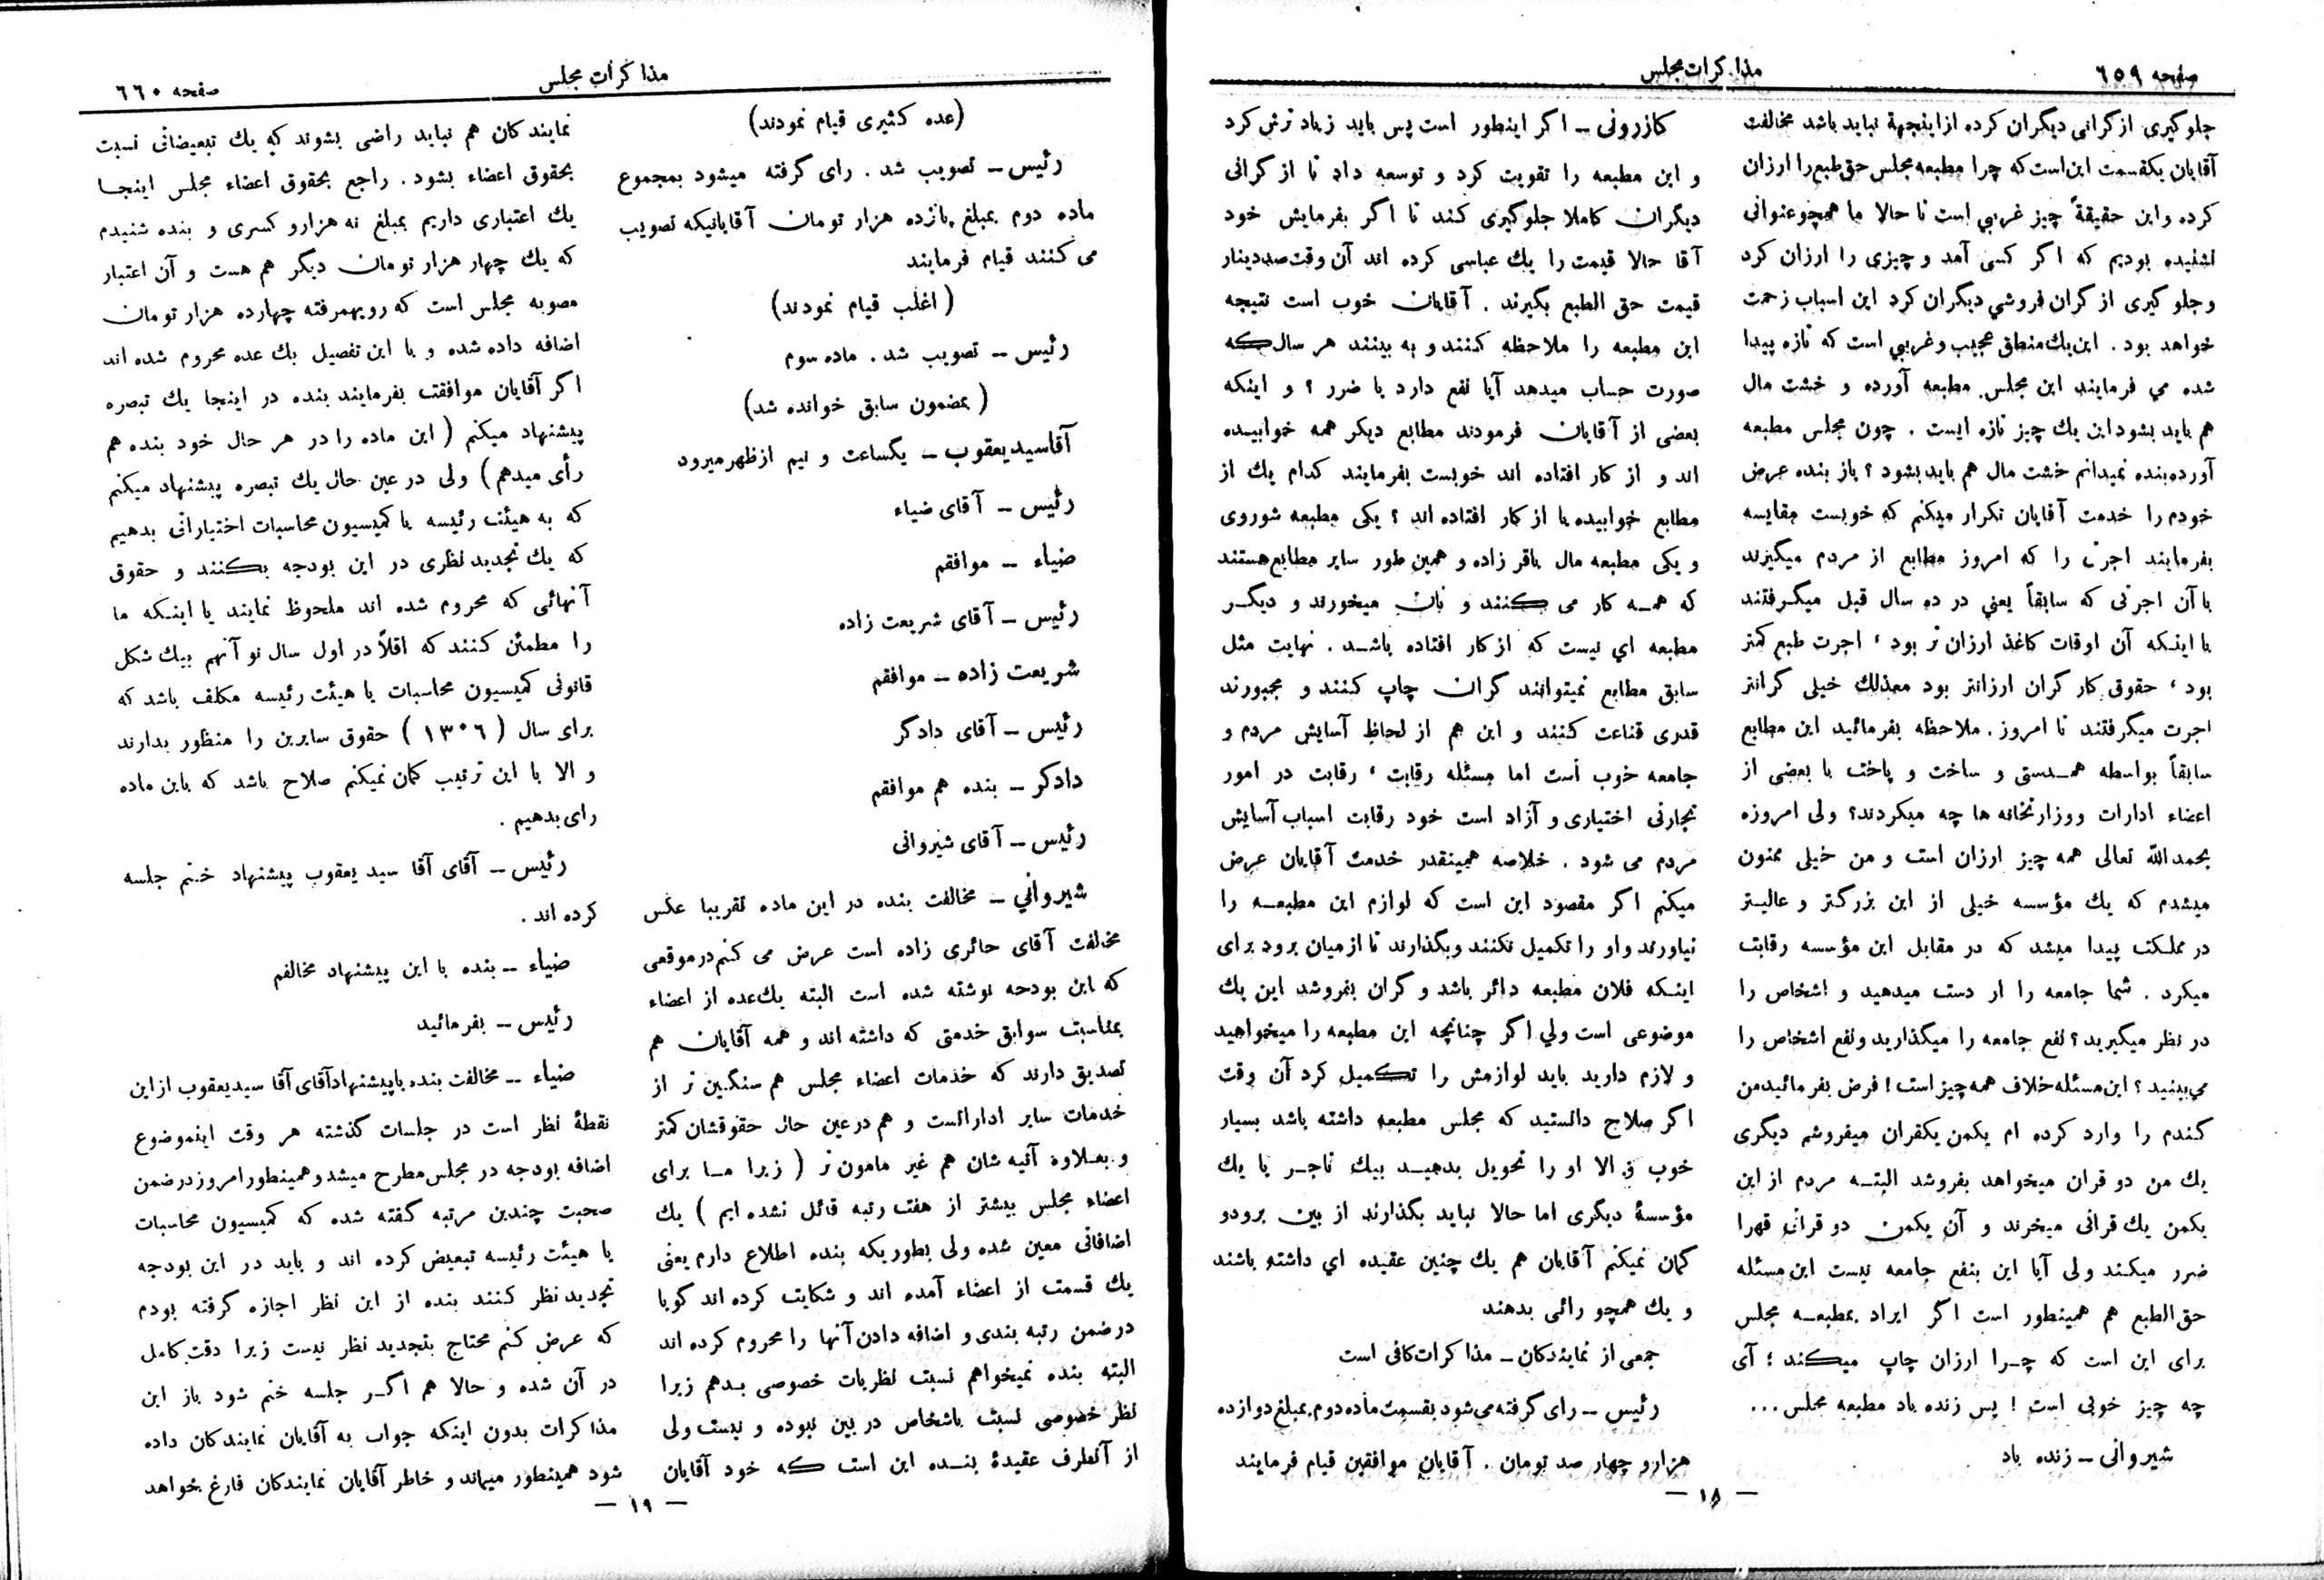 صفحه ٦٥٩
مذاکرات مجلس
جلوگیری از گرانی دیگران کرده از اینجهة نباید باشد مخالفت
آقایان یکقسمت این است که چرا مطبعه مجلس حق طبع را ارزان
کرده و این حقیقةً چیز غریبی است تا حالا ما همچو عنوانی
نشنیده بودیم که اگر کسی آمد و چیزی را ارزان کرد
و جلو گیری از گران فروشی دیگران کرد این اسباب زحمت
خواهد بود . این یك منطق عجیب و غریبی است که تازه پیدا
شده می فرمایند این مجلس مطبعه آورده و خشت مال
هم باید بشود این یك چیز تازه ایست . چون مجلس مطبعه
آورده بنده نمیدانم خشت مال هم باید بشود ؟ باز بنده عرض
خودم را خدمت آقایان تکرار میکنم که خوبست مقایسه
بفرمایند اجرت را که امروز مطابع از مردم میگیرند
با آن اجرتی که سابقاً یعنی در ده سال قبل میگرفتند
با اینکه آن اوقات کاغذ ارزان تر بود ، اجرت طبع کمتر
بود ، حقوق کار گران ارزانتر بود معذلك خیلی گرانتر
اجرت میگرفتند تا امروز . ملاحظه بفرمائید این مطابع
سابقاً بواسطه همدستی و ساخت و پاخت با بعضی از
اعضاء ادارات ووزارتخانه ها چه میکردند؟ ولی امروزه
بحمدالله تعالی همه چیز ارزان است و من خیلی ممنون
میشدم که یك مؤسسه خیلی از این بزرگتر و عالیتر
در مملکت پیدا میشد که در مقابل این مؤسسه رقابت
میکرد . شما جامعه را از دست میدهید و اشخاص را
در نظر میگیرید ؟ نفع جامعه را میگذارید و نفع اشخاص را
می بینید ؟ این مسئله خلاف همه چیز است ! فرض بفرمائید من
گندم را وارد کرده ام یکمن یکقران میفروشم دیگری
یك من دو قران میخواهد بفروشد البته مردم از این
یکمن یك قرانی میخرند و آن یکمن دو قرانی قهرا
ضرر میکند ولی آیا این بنفع جامعه نیست این مسئله
حق الطبع هم همینطور است اگر ایراد بمطبعه مجلس
برای این است که چرا ارزان چاپ میکند ؛ آی
چه چیز خوبی است ! پس زنده باد مطبعه مجلس ...
شیروانی ــ زنده باد
کازرونی ــ اگر اینطور است پس باید زیاد ترش کرد
و این مطبعه را تقویت کرد و توسعه داد تا از گرانی
دیگران کاملا جلوگیری کند تا اگر بفرمایش خود
آقا حالا قیمت را یك عباسی کرده اند آن وقت صد دینار
قیمت حق الطبع بگیرند . آقایان خوب است نتیجه
این مطبعه را ملاحظه کنند و به بینند هر سال که
صورت حساب میدهد آیا نفع دارد یا ضرر ؟ و اینکه
بعضی از آقایان فرمودند مطابع دیگر همه خوابیده
اند و از کار افتاده اند خوبست بفرمایند کدام یك از
مطابع خوابیده یا از کار افتاده اند ؟ یکی مطبعه شوروی
و یکی مطبعه مال باقر زاده و همین طور سایر مطابع هستند
که همه کار می کنند و نان میخورند و دیگر
مطبعه ای نیست که از کار افتاده باشد . نهایت مثل
سابق مطابع نمیتوانند گران چاپ کنند و مجبورند
قدری قناعت کنند و این هم از لحاظ آسایش مردم و
جامعه خوب است اما مسئله رقابت ، رقابت در امور
تجارتی اختیاری و آزاد است خود رقابت اسباب آسایش
مردم می شود . خلاصه همینقدر خدمت آقایان عرض
میکنم اگر مقصود این است که لوازم این مطبعه را
نیاورند و او را تکمیل نکنند و بگذارند تا از میان برود برای
اینکه فلان مطبعه دائر باشد و گران بفروشد این یك
موضوعی است ولی اگر چنانچه این مطبعه را میخواهید
و لازم دارید باید لوازمش را تکمیل کرد آن وقت
اگر صلاح دانستید که مجلس مطبعه داشته باشد بسیار
خوب و الا او را تحویل بدهید بیك تاجر یا یك
مؤسسهٔ دیگری اما حالا نباید بگذارند از بین برود و
گمان نمیکنم آقایان هم یك چنین عقیده ای داشته باشند
و یك همچو رائی بدهند
جمعی از نمایندگان ــ مذاکرات کافی است
رئیس ــ رای گرفته می شود بقسمت ماده دوم بمبلغ دوازده
هزار و چهار صد تومان . آقایان موافقین قیام فرمایند
— ١٨ —
مذاکرات مجلس
صفحه ٦٦٠
(عده کثیری قیام نمودند)
رئیس ــ تصویب شد . رای گرفته میشود بمجموع
ماده دوم بمبلغ پانزده هزار تومان آقایانیکه تصویب
می کنند قیام فرمایند
( اغلب قیام نمودند)
رئیس ــ تصویب شد . ماده سوم
( بمضمون سابق خوانده شد)
آقاسید یعقوب ــ یکساعت و نیم از ظهر میرود
رئیس ــ آقای ضیاء
ضیاء ــ موافقم
رئیس ــ آقای شریعت زاده
شریعت زاده ــ موافقم
رئیس ــ آقای دادگر
دادگر ــ بنده هم موافقم
رئیس ــ آقای شیروانی
شیروانی ــ مخالفت بنده در این ماده تقریبا عکس
مخالفت آقای حائری زاده است عرض می کنم در موقعی
که این بودجه نوشته شده است البته یك عده از اعضاء
بمناسبت سوابق خدمتی که داشته اند و همه آقایان هم
تصدیق دارند که خدمات اعضاء مجلس هم سنگین تر از
خدمات سایر ادارانست و هم در عین حال حقوقشان کمتر
و بعلاوه آتیه شان هم غیر مامون تر ( زیرا ما برای
اعضاء مجلس بیشتر از هفت رتبه قائل نشده ایم ) یك
اضافاتی معین شده ولی بطوریکه بنده اطلاع دارم یعنی
یك قسمت از اعضاء آمده اند و شکایت کرده اند گویا
در ضمن رتبه بندی و اضافه دادن آنها را محروم کرده اند
البته بنده نمیخواهم نسبت نظریات خصوصی بدهم زیرا
نظر خصوصی نسبت باشخاص در بین نبوده و نیست ولی
از آنطرف عقیدهٔ بنده این است که خود آقایان
نمایندگان هم نباید راضی بشوند که یك تبعیضاتی نسبت
بحقوق اعضاء بشود . راجع بحقوق اعضاء مجلس اینجا
یك اعتباری داریم بمبلغ نه هزار و کسری و بنده شنیدم
که یك چهار هزار تومان دیگر هم هست و آن اعتبار
مصوبه مجلس است که رویهمرفته چهارده هزار تومان
اضافه داده شده و با این تفصیل یك عده محروم شده اند
اگر آقایان موافقت بفرمایند بنده در اینجا یك تبصره
پیشنهاد میکنم ( این ماده را در هر حال خود بنده هم
رأی میدهم ) ولی در عین حال یك تبصره پیشنهاد میکنم
که به هیئت رئیسه یا کمیسیون محاسبات اختیاراتی بدهیم
که یك تجدید نظری در این بودجه بکنند و حقوق
آنهائی که محروم شده اند ملحوظ نمایند یا اینکه ما
را مطمئن کنند که اقلاً در اول سال نو آنهم بیك شکل
قانونی کمیسیون محاسبات یا هیئت رئیسه مکلف باشد که
برای سال ( ١٣٠٦ ) حقوق سایرین را منظور بدارند
و الا با این ترتیب گمان نمیکنم صلاح باشد که باین ماده
رای بدهیم .
رئیس ــ آقای آقا سید یعقوب پیشنهاد ختم جلسه
کرده اند .
ضیاء ــ بنده با این پیشنهاد مخالفم
رئیس ــ بفرمائید
ضیاء ــ مخالفت بنده با پیشنهاد آقای آقا سید یعقوب از این
نقطهٔ نظر است در جلسات گذشته هر وقت اینموضوع
اضافه بودجه در مجلس مطرح میشد و همینطور امروز در ضمن
صحبت چندین مرتبه گفته شده که کمیسیون محاسبات
یا هیئت رئیسه تبعیض کرده اند و باید در این بودجه
تجدید نظر کنند بنده از این نظر اجازه گرفته بودم
که عرض کنم محتاج بتجدید نظر نیست زیرا دقت کامل
در آن شده و حالا هم اگر جلسه ختم شود باز این
مذاکرات بدون اینکه جواب به آقایان نمایندگان داده
شود همینطور میماند و خاطر آقایان نمایندگان فارغ نخواهد
— ١٩ —